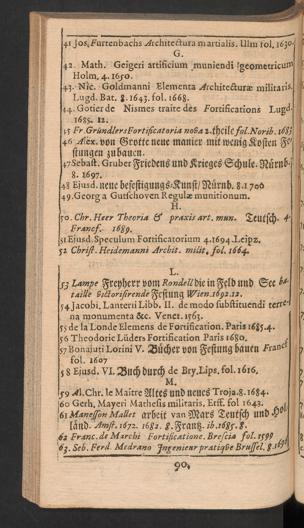 41 Jos. Furtenbachs Architectura martialis. Ulm fol. 1630.
G.
42 Math. Geigeri artificium muniendi geometricum
Holm. 4. 1650.
43 Nic. Goldmanni Elementa Architecturæ militaris.
Lugd. Bat. 8. 1643. fol. 1668.
44 Gotier de Nismes traite des Fortifications Lugd.
1685. 12.
45 Fr. Gründlers Fortificatoria nova 2. theile fol. Norib. 1683
46 Alex. von Grotte neue manier mit wenig Kosten Fe-
stungen zu bauen.
47 Sebast. Gruber Friedens und Krieges Schule. Nürnb.
8. 1697.
48 Ejusd. neue befestigungs-Kunst/ Nürnb. 8. 1700
49 Georg a Gutschoven Regulæ munitionum.
H.
50. Chr. Heer Theoria & praxis art. mun. Teutsch. 4
Francf. 1689.
51 Ejusd. Speculum Fortificatorium 4. 1694. Leipz.
52 Christ. Heidemanni Archit. milit. fol. 1664.
L.
53 Lampe Freyherr vom Rondell die in Feld und See ba-
taille victorisirende Festung Wien. 1692. 12.
54 Jacobi Lanterii Libb. II. de modo substituendi terre-
na monumenta &c. Venet. 1563.
55 de la Londe Elemens de Fortification. Paris 1685. 4.
56 Theodoric Lüders Fortification Paris 1680.
57 Bonajuti Lorini V. Bücher von Festung bauen Francf
fol. 1607
58 Ejusd. VI. Buch durch de Bry, Lips. fol. 1616.
M.
59 Al. Chr. le Maitre Altes und neues Troja. 8. 1684.
60 Gerh. Mayeri Mathesis militaris. Erff. fol 1643.
61 Manesson Mallet arbeit van Mars Teutsch und Hol-
länd. Amst. 1672. 1682. 8. Frantz. ib. 1685. 8.
62 Franc. de Marchi Fortificatione. Brescia fol. 1599
63. Seb. Ferd. Medrano Ingenieur pratique Brussel. 8. 1696
90.